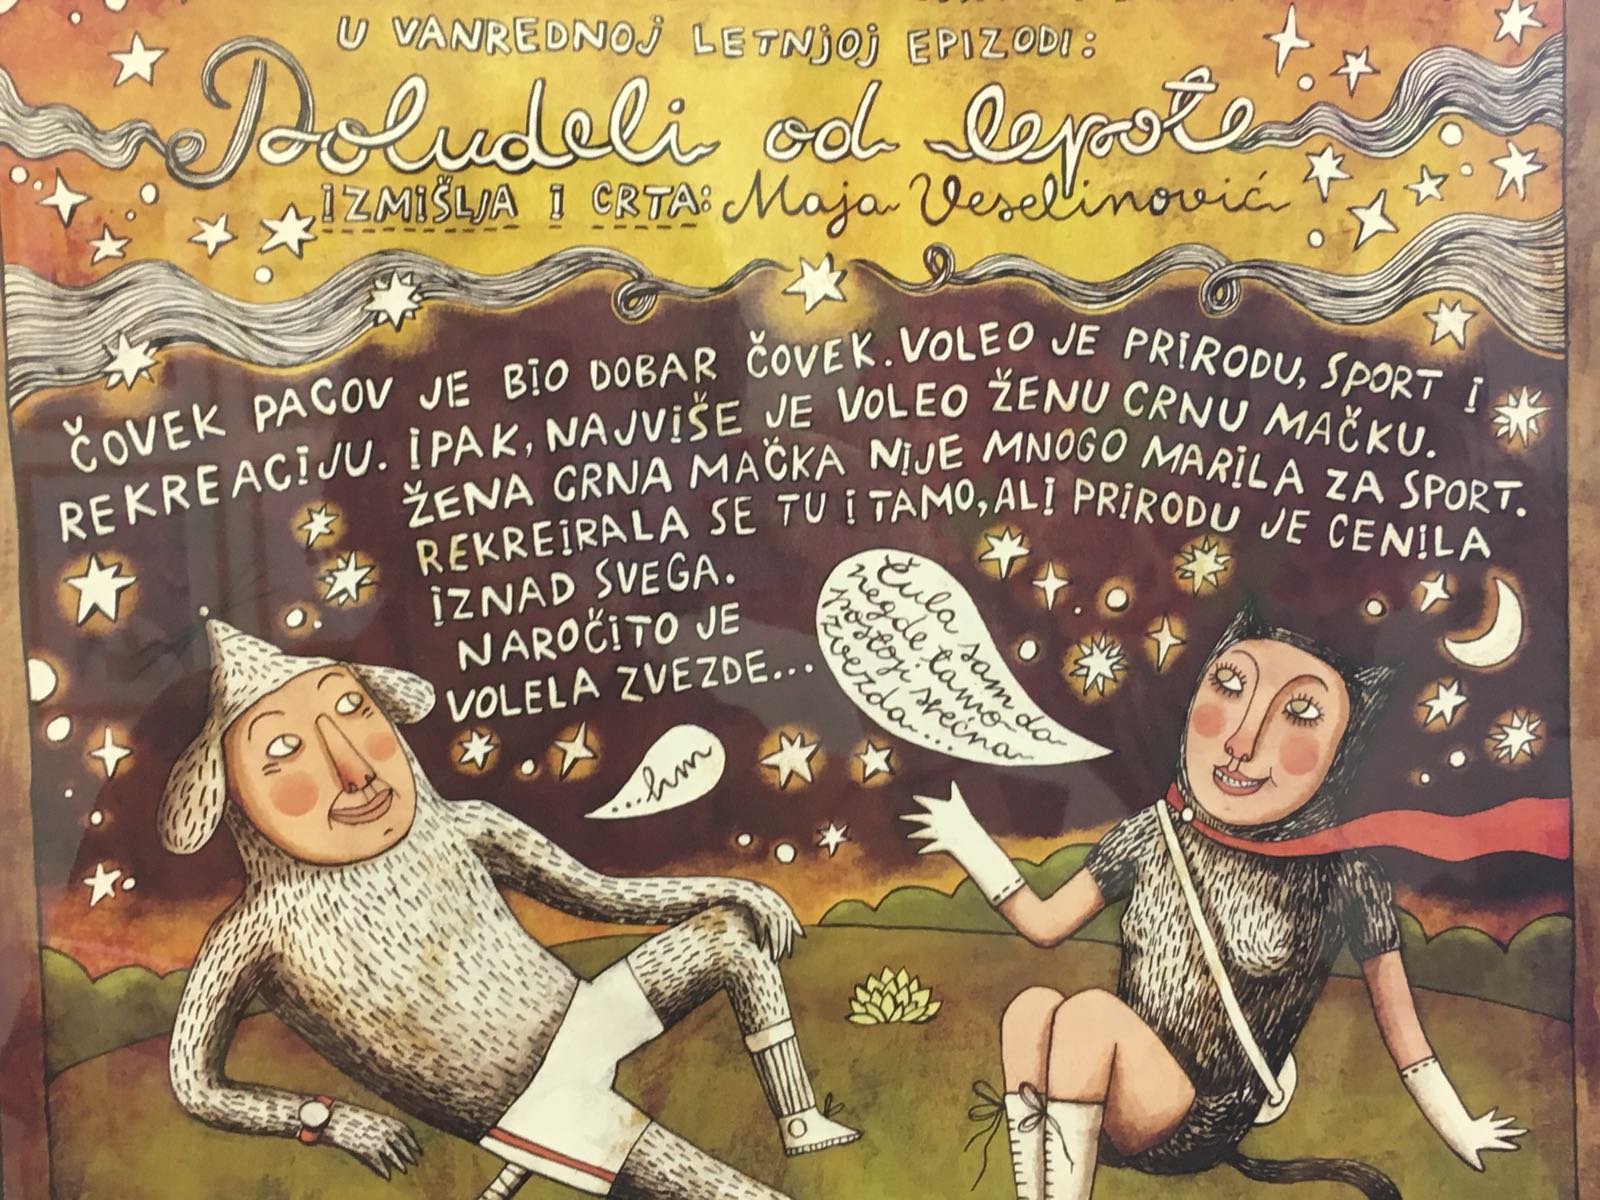 U VANREDNOJ LETNJOJ EPIZODI:
Poludeli od lepote
IZMIŠLJA I CRTA: Maja Veselinović
ČOVEK PACOV JE BIO DOBAR ČOVEK. VOLEO JE PRIRODU, SPORT I
REKREACIJU. IPAK, NAJVIŠE JE VOLEO ŽENU CRNU MAČKU.
ŽENA CRNA MAČKA NIJE MNOGO MARILA ZA SPORT.
REKREIRALA SE TU I TAMO, ALI PRIRODU JE CENILA
IZNAD SVEGA.
NAROČITO JE
VOLELA ZVEZDE...
Čula sam da
negde tamo
postoji srećna
zvezda...
...hm